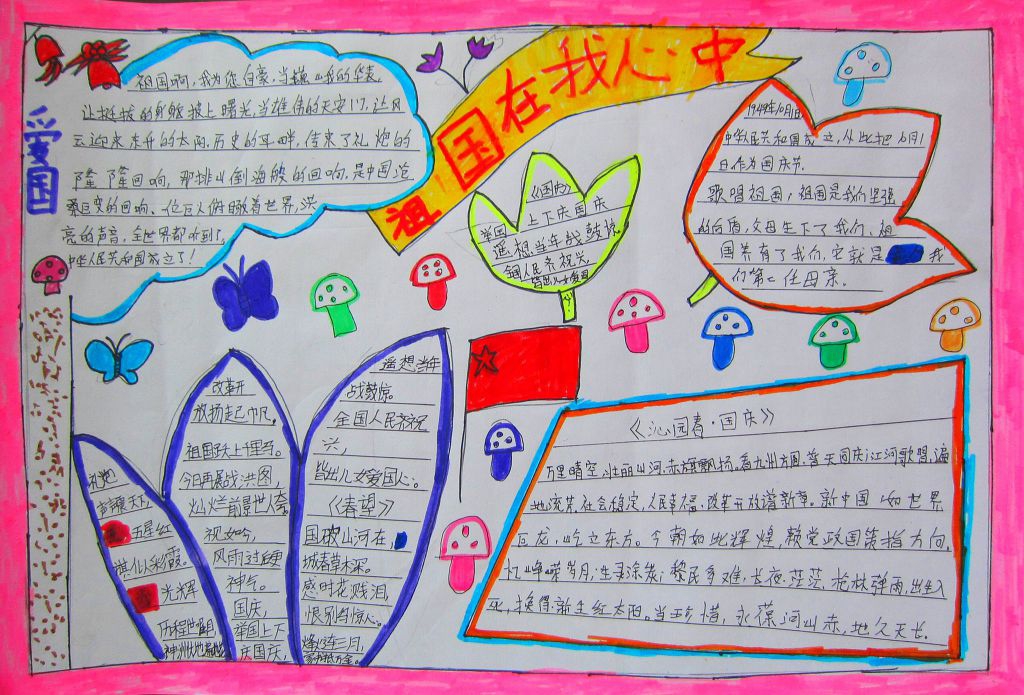 祖国在我心中
爱国
祖国啊,我为您自豪.当巍山我的华表,
让挺拔的身躯披上曙光,当雄伟的天安门,让风
云迎来东升的太阳,历史的耳畔,传来了礼炮的
隆隆回响,那排山倒海般的回响,是中国沧
桑巨变的回响、一位巨人俯瞰着世界,洪
亮的声音,全世界都听到了,
中华人民共和国成立了!
《国庆》
举国上下庆国庆
遥想当年战鼓惊
全国人民齐祝兴
皆出儿女爱国
心
1949年10月1日
中华人民共和国成立,从此把10月1
日作为国庆节.
歌唱祖国:祖国是我们坚强
的后盾,父母生下了我们,祖
国养育了我们,它就是我
们第二任母亲.
礼炮
声震天下
五星红
光辉
历程
改革开
放扬起帆,
祖国跃上千里马。
今日再展战洪图,
灿烂前景世人夸
风雨过后
神气。
国庆,
举国上下
庆国庆,
遥想当年
战鼓惊。
全国人民齐祝
兴,
皆出儿女爱国心。
《春望》
国破山河在,
城春草木深。
感时花贱泪,
恨别鸟惊心。
烽火连三月,
家书抵万金。
《沁园春·国庆》
万里晴空,壮丽山河,赤旗飘扬。看九州方圆,普天同庆;江河歌唱,遍
地流芳.社会稳定,人民幸福,改革开放谱新章。新中国,如世界
巨龙,屹立东方。今朝如此辉煌,赖党政国策指方向,
忆峥嵘岁月;生灵涂炭;黎民多难,长夜茫茫.枪林弹雨,出生入
死,换得新生红太阳。当珍惜,永葆河山赤,地久天长.